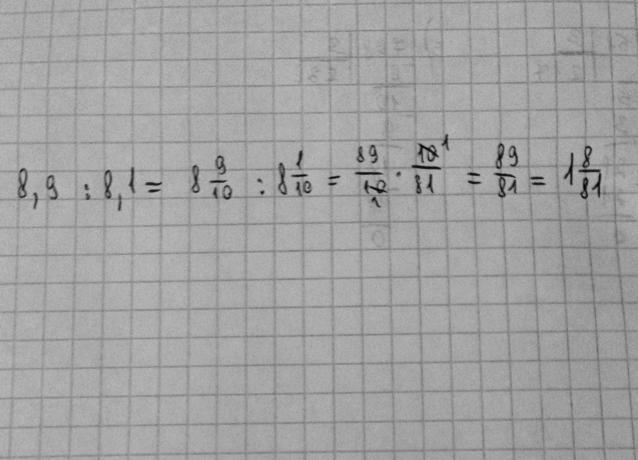 8,9 : 8,1 = 8 9/10 : 8 1/10 = 89/10 1 · 10/81 1 = 89/81 = 1 8/81